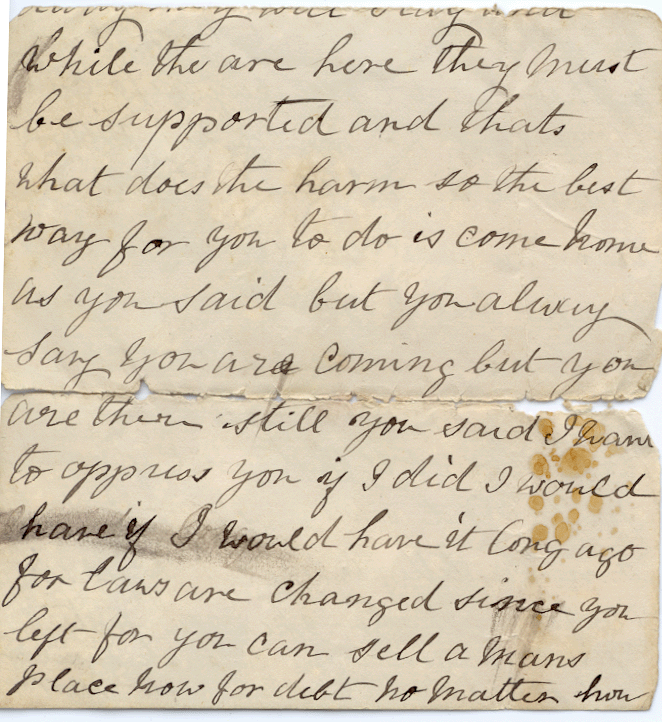 will stay and
while the are here they must
be supported and thats
what does the harm so the best
way for you to do is come home
as you said but you alway
say you are coming but you
are there still you said I want
to oppress you if I did I would
have if I would have it long ago
for laws are changed since you
left for you can sell a mans
place now for debt no matter how